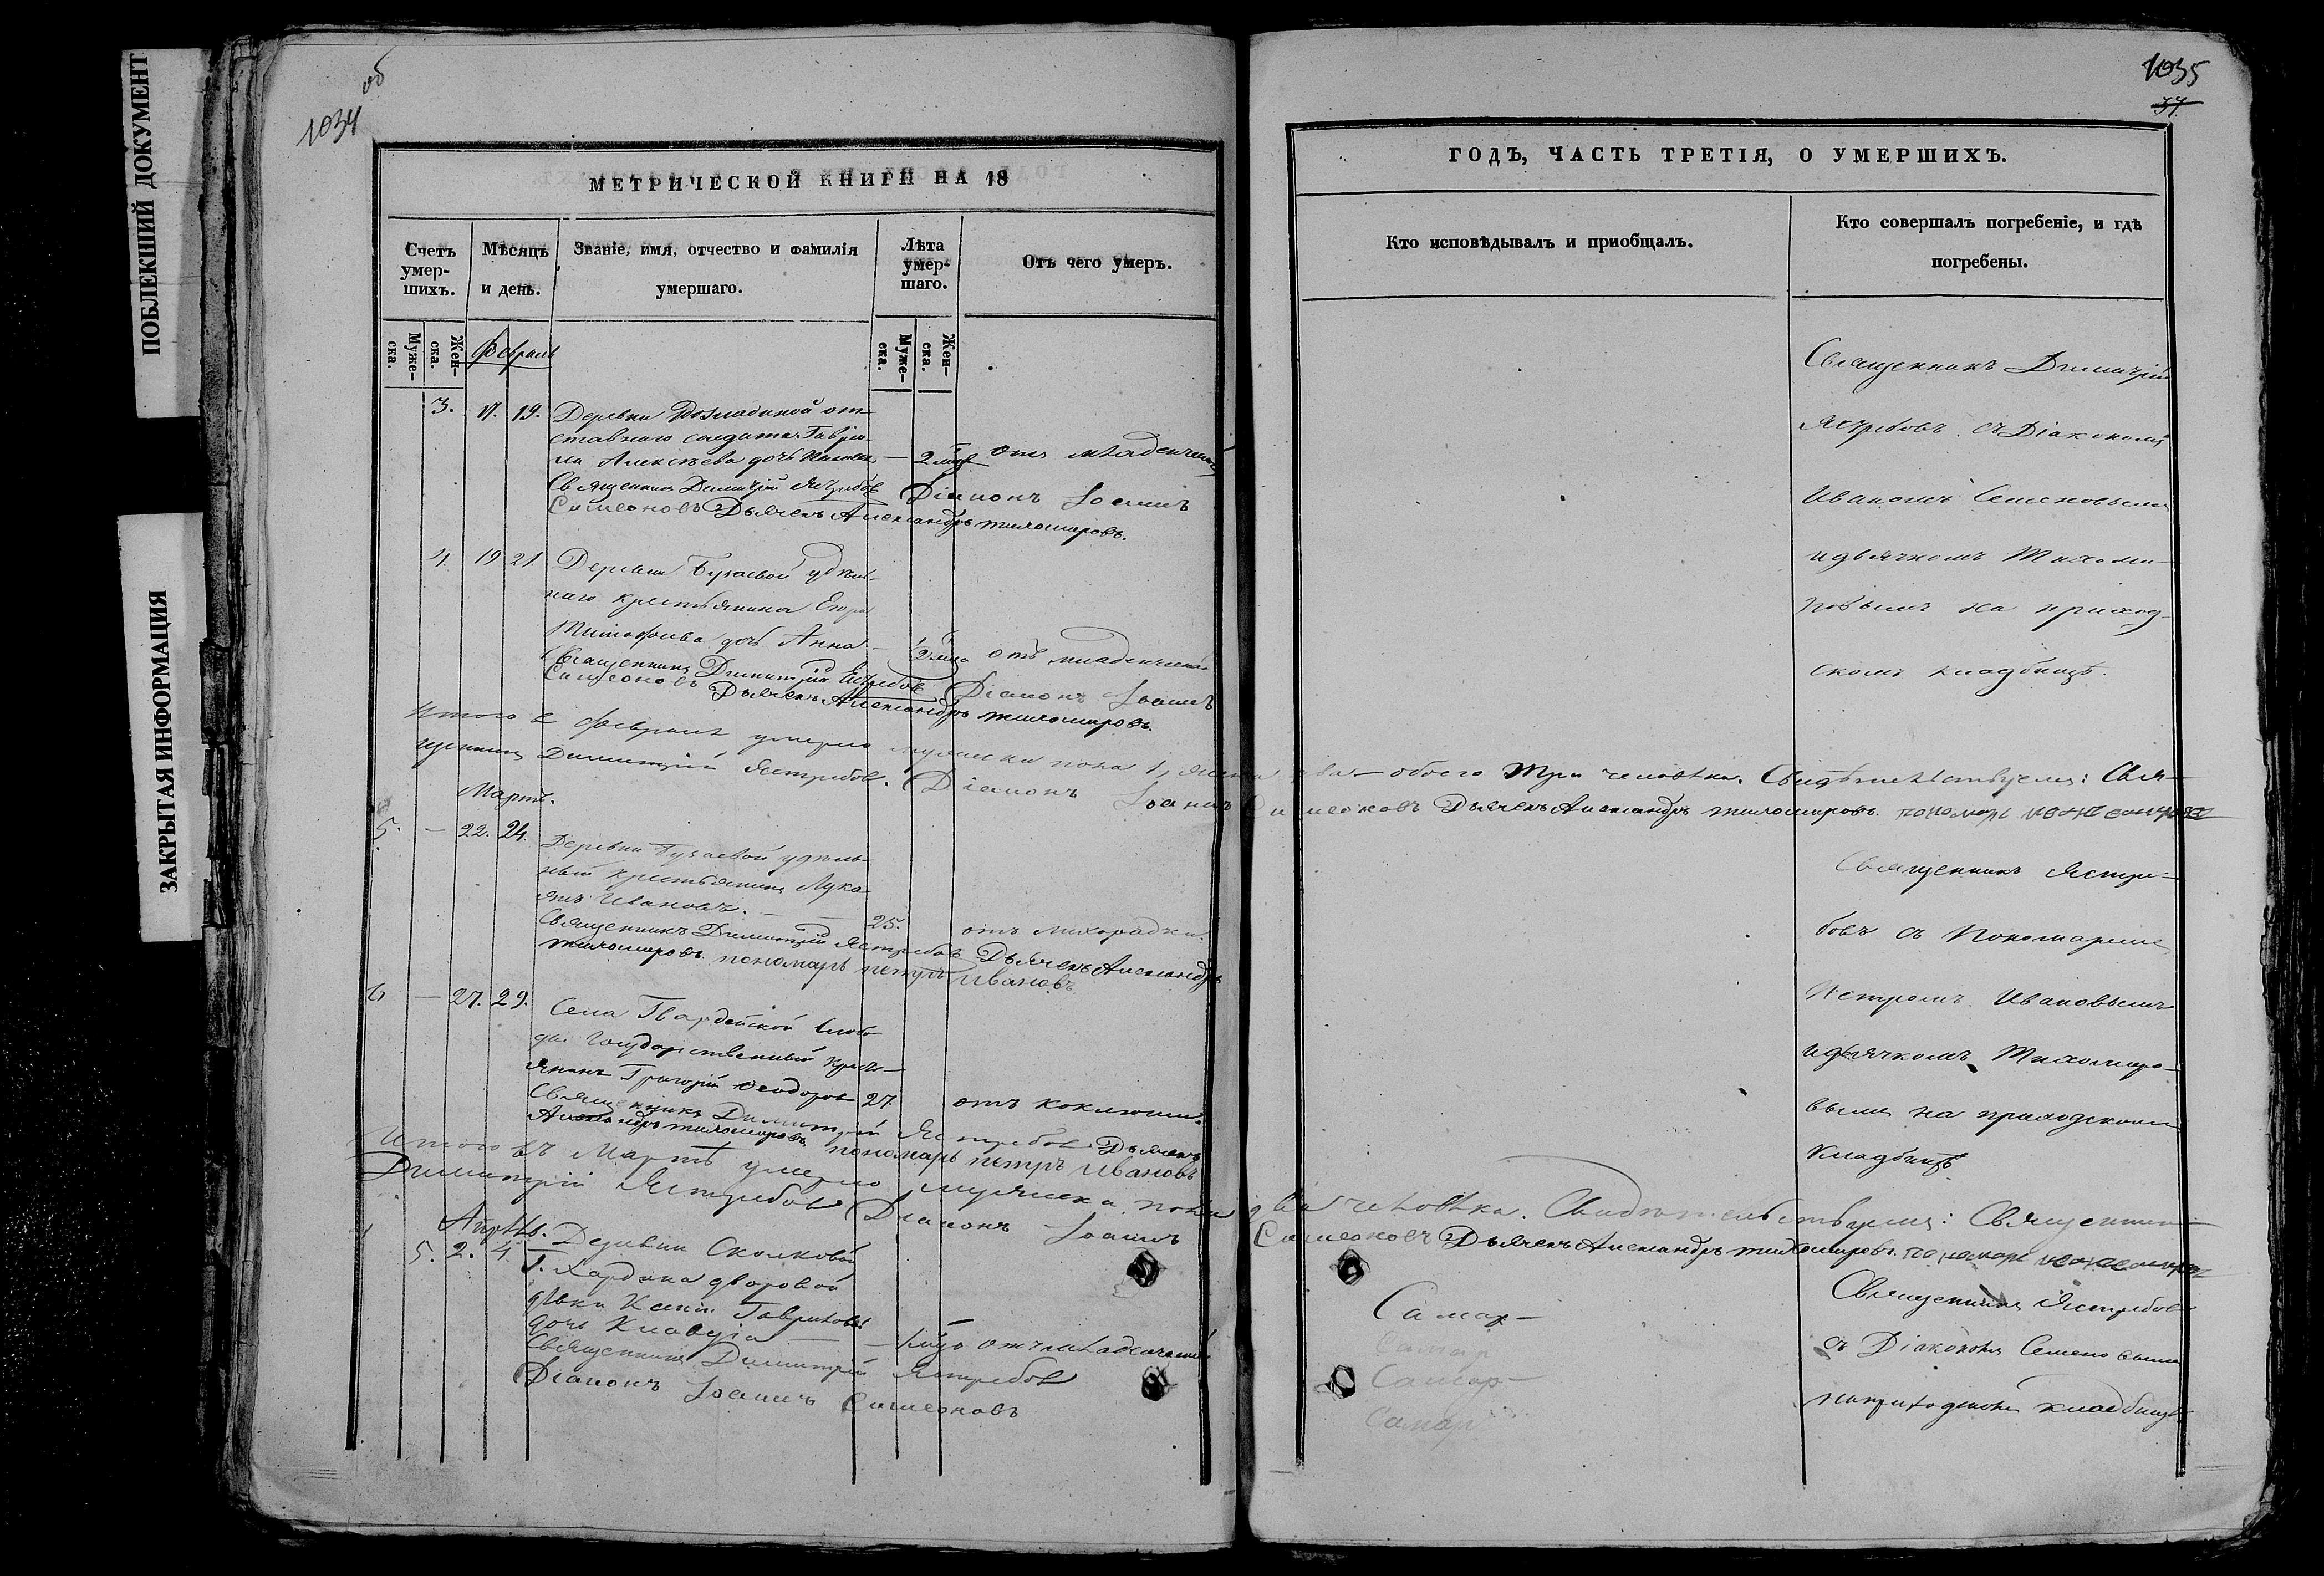 ПОБЛЕКШИЙ ДОКУМЕНТ
ЗАКРЫТАЯ ИНФОРМАЦИЯ
1034
об
МЕТРИЧЕСКОЙ КНИГИ НА 18
Счетъ умер-шихъ.
Мѣсяцъ и день.
Званіе, имя, отчество и фамилія умершаго.
Лѣта умер-шаго.
Отъ чего умеръ.
Муже-ска.
Жен-ска.
Муже-ска.
Жен-ска.
Февраль
3. 17. 19. Деревни отставнаго солдата Гаврі-
ла Алексѣева дочь — 2 мца отъ младенческой
Священникъ Димитрій Ястребовъ Діаконъ Іоаннъ
Симеоновъ Дьячекъ Александръ Тихомировъ.
4. 19 21. Деревни Бузаевой удѣль-
наго крестьянина Егора
Тимофеева дочь Анна — 2 мца отъ младенческой
Священникъ Димитрій Ястребовъ Діаконъ Іоаннъ
Симеоновъ Дьячекъ Александръ Тихомировъ.
Итого в феврале умерло мужеска пола 1, женска два — обоего три человѣка. Свидѣтельствуемъ: Свя-
щенникъ Димитрій Ястребовъ. Діаконъ Іоаннъ Симеоновъ Дьячекъ Александръ Тихомировъ. пономарь
Мартъ.
5. — 22. 24. Деревни Бузаевой удѣль-
ный крестьянинъ Лука-
янъ Ивановъ. — 25. отъ лихорадки.
Священникъ Димитрій Ястребовъ Дьячекъ Александръ
Тихомировъ. пономарь петръ Ивановъ
6 — 27. 29. Села Гвардейской Слобо-
ды Государственный кресть-
янинъ Григорій Феодоровъ 27 отъ коклюши.
Священникъ Димитрій Ястребовъ Дьячекъ
Александръ Тихомировъ. пономарь петръ Ивановъ
Итого въ Мартѣ умерло мужеска пола два человѣка. Свидѣтельствуемъ: Священникъ
Димитрій Ястребовъ Діаконъ Іоаннъ Симеоновъ Дьячекъ Александръ Тихомировъ. пономарь
Апрѣль.
5. 2. 4. Деревни Сколковой
Г. дворовой
дѣвки Гавриловой
дочь Клавдія — отъ младенческой
Священникъ Димитрій Ястребовъ
Діаконъ Іоаннъ Симеоновъ
1035
37.
ГОДЪ, ЧАСТЬ ТРЕТІЯ, О УМЕРШИХЪ.
Кто исповѣдывалъ и пріобщалъ.
Кто совершалъ погребеніе, и гдѣ погребены.
Священникъ Димитрій
Ястребовъ съ Діакономъ
Иваномъ Семеновымъ
и дьячкомъ Тихоми-
ровымъ на приход-
скомъ кладбищѣ.
Священникъ Ястре-
бовъ съ Пономаремъ
Петромъ Ивановымъ
и дьячкомъ Тихомиро-
вымъ на приходскомъ
Кладбищѣ
Священникъ Ястребовъ
съ Діакономъ Семеновымъ
на приходскомъ кладбищѣ
Самар-
Самар
Самар-
Самар